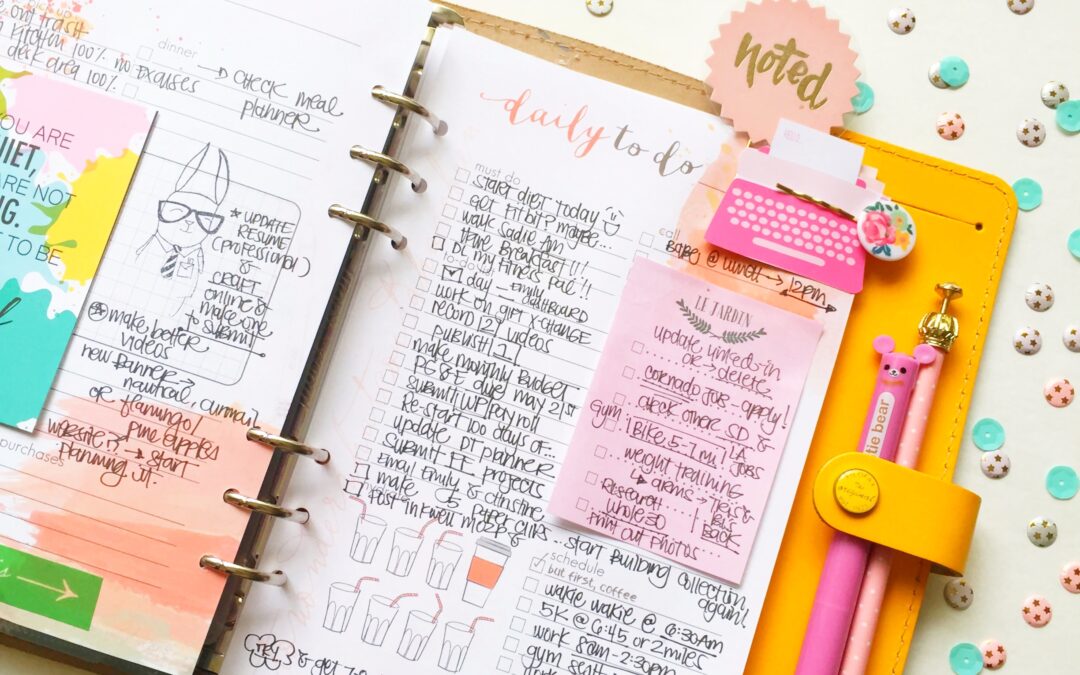 out trash
kitchen 100% no excuses
deck area 100%
dinner
→ Check meal
planner
YOU ARE
QUIET,
ARE NOT
TO BE
★ update
resume
(professional)
or
craft
online &
make one
to submit
make better
videos
new banner →
nautical,
or flamingo/
pineapples
website? → start
planning it.
purchases
daily to do
must do
Start diet today
get fitbit? maybe...
walk Sadie AM
Have Breakfast!!!
DL my Fitness Pal!!
to day – Emily
dashboard
work on gift x-change
record 2 videos
publish 1
make monthly Budget
PG&E due May 21st
submit WP pay roll
Re-start 100 days of...
update DT planner
submit FF projects
Email Emily & Christine
make 5 paper clips
Post inkwell
...start building collection
again!
noted
call
Babe @ lunch → 12pm
LE JARDIN
update linked-in
or → delete
coronado jobs...apply!
check other SD &
LA
jobs
gym:
! Bike 5-7mi!
weight training
→ arms → tri's &
bi's
Back
Research
whole 30
Print out photos...
schedule
but first, coffee
wakie wakie @ 6:30am
5K @ 6:45 or 2 miles
work 8am-2:30pm
gym
try
& get
tie bear